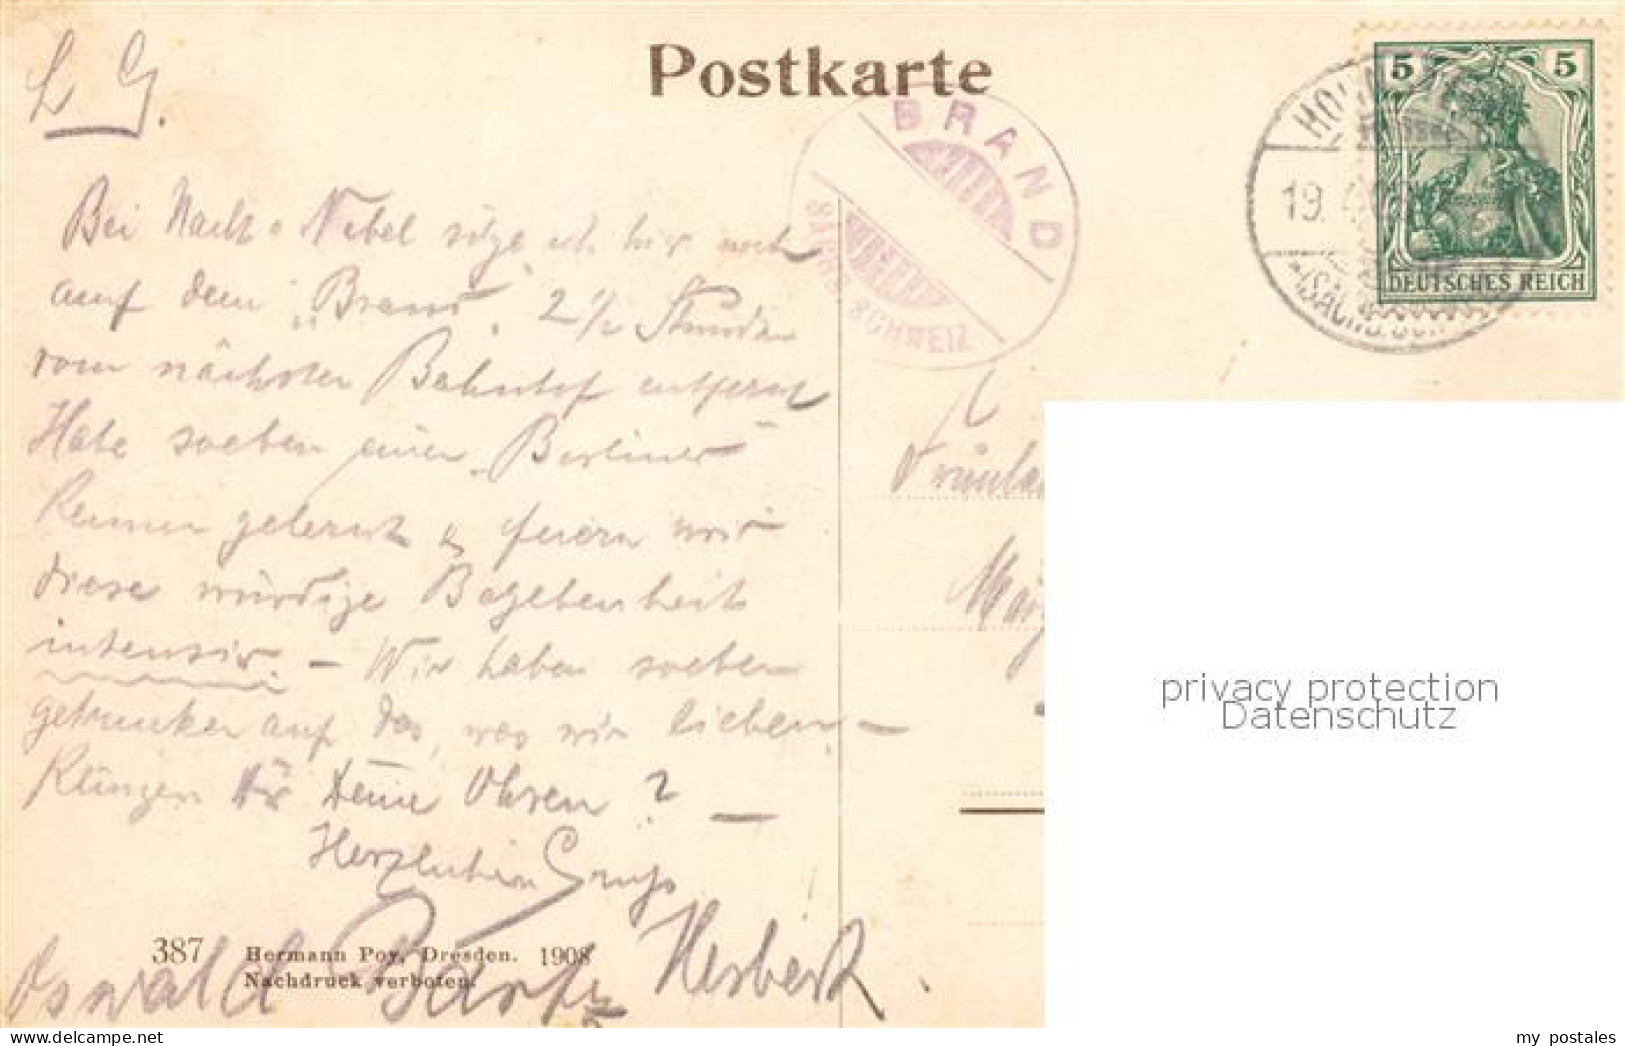 Postkarte
L G.
BRAND
SÄCHS. SCHWEIZ
5 5
DEUTSCHES REICH
19. 4.
Bei Nacht u Nebel sitze ich hier noch
auf dem "Brand", 2 1/2 Stunden
vom nächsten Bahnhof entfernt
Habe soeben einen "Berliner"
Kennen gelernt & feiern wir
diese würdige Begebenheit
intensiv. – Wir haben soeben
getrunken auf das, was wir lieben –
Klingen Dir Deine Ohren? –
Herzlichen Gruß
Herbert.
Oswald
387 Hermann Poy, Dresden. 1908
Nachdruck verboten.
Fräulein
privacy protection
Datenschutz
my postales